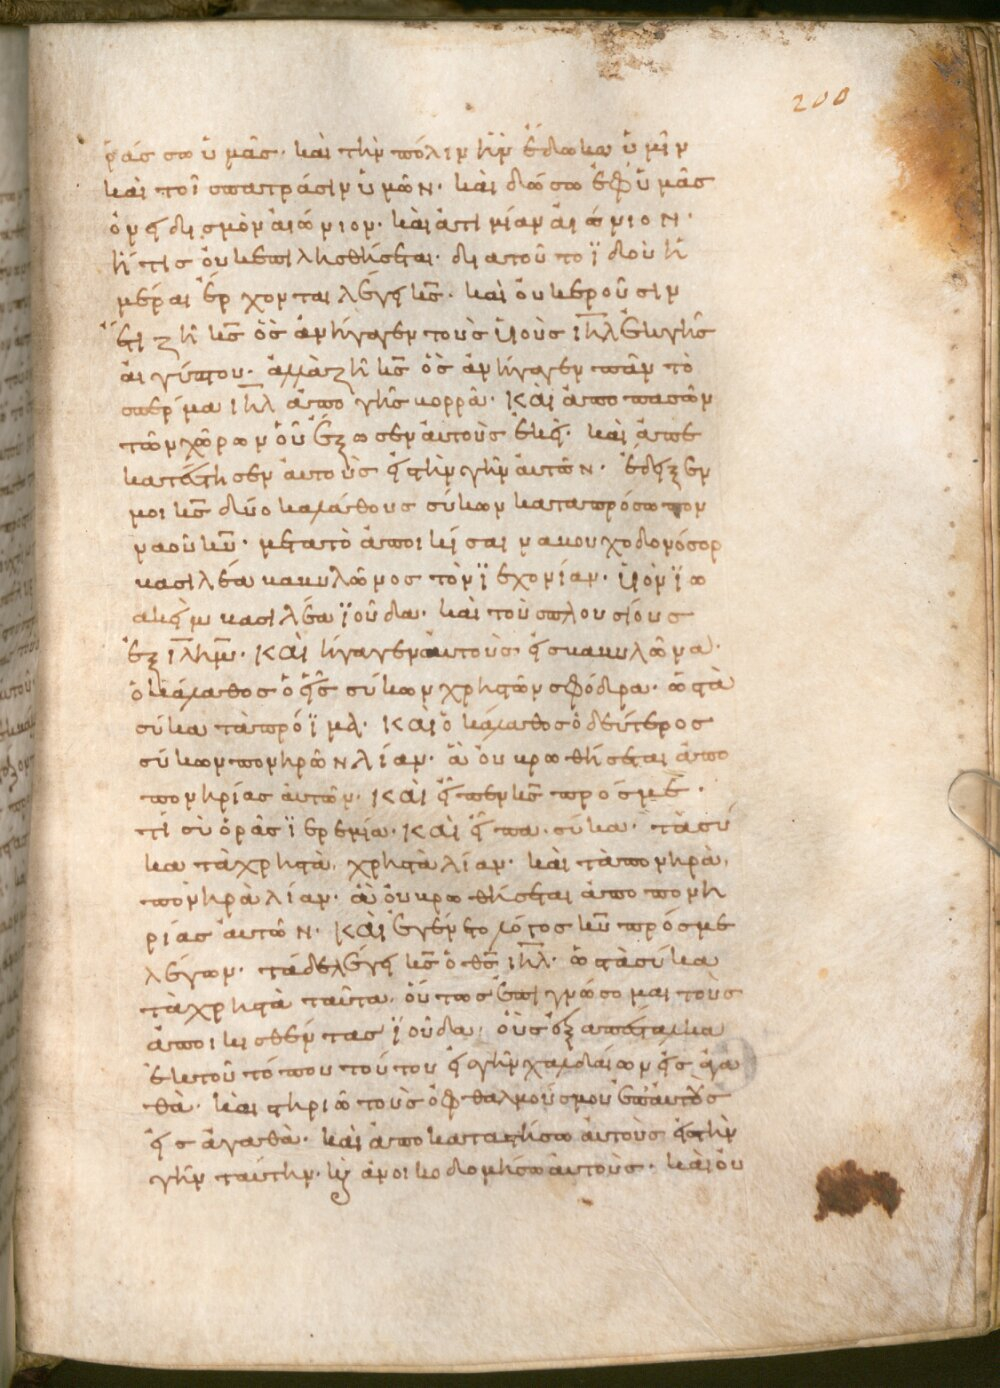 200
ράσσω ὑμᾶς· καὶ τὴν πόλιν ἣν ἔδωκα ὑμῖν
καὶ τοῖς πατράσιν ὑμῶν· καὶ δώσω ἐφ ὑμᾶς
ὀνειδισμὸν αἰώνιον· καὶ ἀτιμίαν αἰώνιον·
ἥτις οὐκ ἐπιλησθήσεται· διατοῦτο ἰδοὺ ἡ
μέραι ἔρχονται λέγει κς̅· καὶ οὐκ ἐροῦσιν
ἔτι ζῆ κς̅ ὃς ἀνήγαγεν τοὺς υἱοὺς ιηλ̅ ἐκ γῆς
αἰγύπτου· ἀλλὰ ζῆ κς̅ ὃς ἀνήγαγεν πᾶν τὸ
σπέρμα ιηλ̅ ἀπο γῆς βορρᾶ· καὶ ἀπο πασῶν
τῶν χώρων οὗ ἔξωσεν αὐτοὺς ἐκεῖ· καὶ ἀπε
κατέστησεν αὐτοὺς εἰς τὴν γῆν αὐτῶν· ἔδειξεν
μοι κς̅ δύο καλάθους σύκων καταπρόσωπον
ναοῦ κυ̅· μετατὸ ἀποικίσαι ναβουχοδονόσορ
βασιλέα βαβυλῶνος τὸν ἰεχονίαν· υἱὸν ἰω
ακεὶμ βασιλέα ἰοῦδα· καὶ τοὺς πλουσίους
ἐξ ιλημ̅· καὶ ἤγαγεν αὐτοὺς εἰς βαβυλῶνα·
ὁ κάλαθος ὁ εἷς σύκων χρηστῶν σφόδρα· ὡς τὰ
σύκα τὰ πρόϊμα· καὶ ὁ κάλαθος ὁ δεύτερος
σύκων πονηρῶν λίαν· ἃ οὐ βρωθήσεται ἀπο
πονηρίας αὐτῶν· καὶ εἶπεν κς̅ πρός με·
τί σὺ ὁρᾶς ἱερεμία· καὶ εἶπα· σύκα· τὰ σύ
κα τὰ χρηστὰ, χρηστὰ λίαν· καὶ τὰ πονηρὰ,
πονηρὰ λίαν· ἃ οὐ βρωθήσεται ἀπο πονη
ρίας αὐτῶν· καὶ ἐγένετο λόγος κυ̅ πρός με
λέγων· τάδε λέγει κς̅ ὁ θς̅ ιηλ̅· ὡς τὰ σύκα
τὰ χρηστὰ ταῦτα, οὕτως ἐπιγνώσομαι τοὺς
ἀποικισθέντας ἰοῦδα, οὓς ἐξαπέσταλκα
ἐκ τοῦ τόπου τούτου εἰς γῆν χαλδαίων εἰς ἀγα
θὰ· καὶ στηριῶ τοὺς ὀφθαλμούς μου ἐπ αὐτοὺς
εἰς ἀγαθὰ· καὶ ἀποκαταστήσω αὐτοὺς εἰς τὴν
γῆν ταύτην· κϗ ἀνοικοδομήσω αὐτοὺς· καὶ οὐ